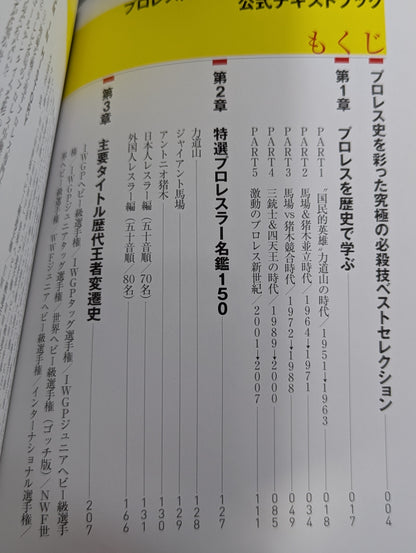 プロレス
公式テキストブック
もくじ
プロレス史を彩った究極の必殺技ベストセレクション 004
第1章 プロレスを歴史で学ぶ 017
PART1 “国民的英雄”力道山の時代/1951→1963 018
PART2 馬場&猪木並立時代/1964→1971 034
PART3 馬場vs猪木競合時代/1972→1988 049
PART4 三銃士&四天王の時代/1989→2000 085
PART5 激動のプロレス新世紀/2001→2007 111
第2章 特選プロレスラー名鑑150 127
力道山 128
ジャイアント馬場 129
アントニオ猪木 130
日本人レスラー編(五十音順、70名) 131
外国人レスラー編(五十音順、80名) 166
第3章 主要タイトル歴代王者変遷史 207
IWGPヘビー級選手権/IWGPタッグ選手権/IWGPジュニアヘビー級選手
権/IWGPジュニアタッグ選手権/世界ヘビー級選手権(ゴッチ版)/NWF世
界ヘビー級選手権/WWFジュニアヘビー級選手権/インターナショナル選手権/